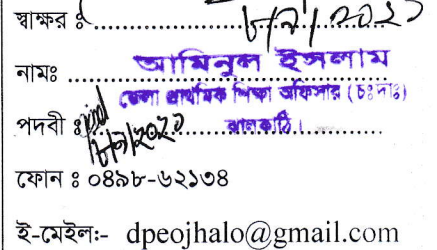 স্বাক্ষর ঃ ৮/৭/২০২১
নামঃ আমিনুল ইসলাম
জেলা প্রাথমিক শিক্ষা অফিসার (চঃদাঃ)
পদবী ঃ ঝালকাঠি।
৮/৭/২০২১
ফোন ঃ ০৪৯৮-৬২১৩৪
ই-মেইলঃ- dpeojhalo@gmail.com